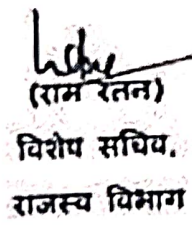 (राम रतन)
विशेष सचिव.
राजस्व विभाग